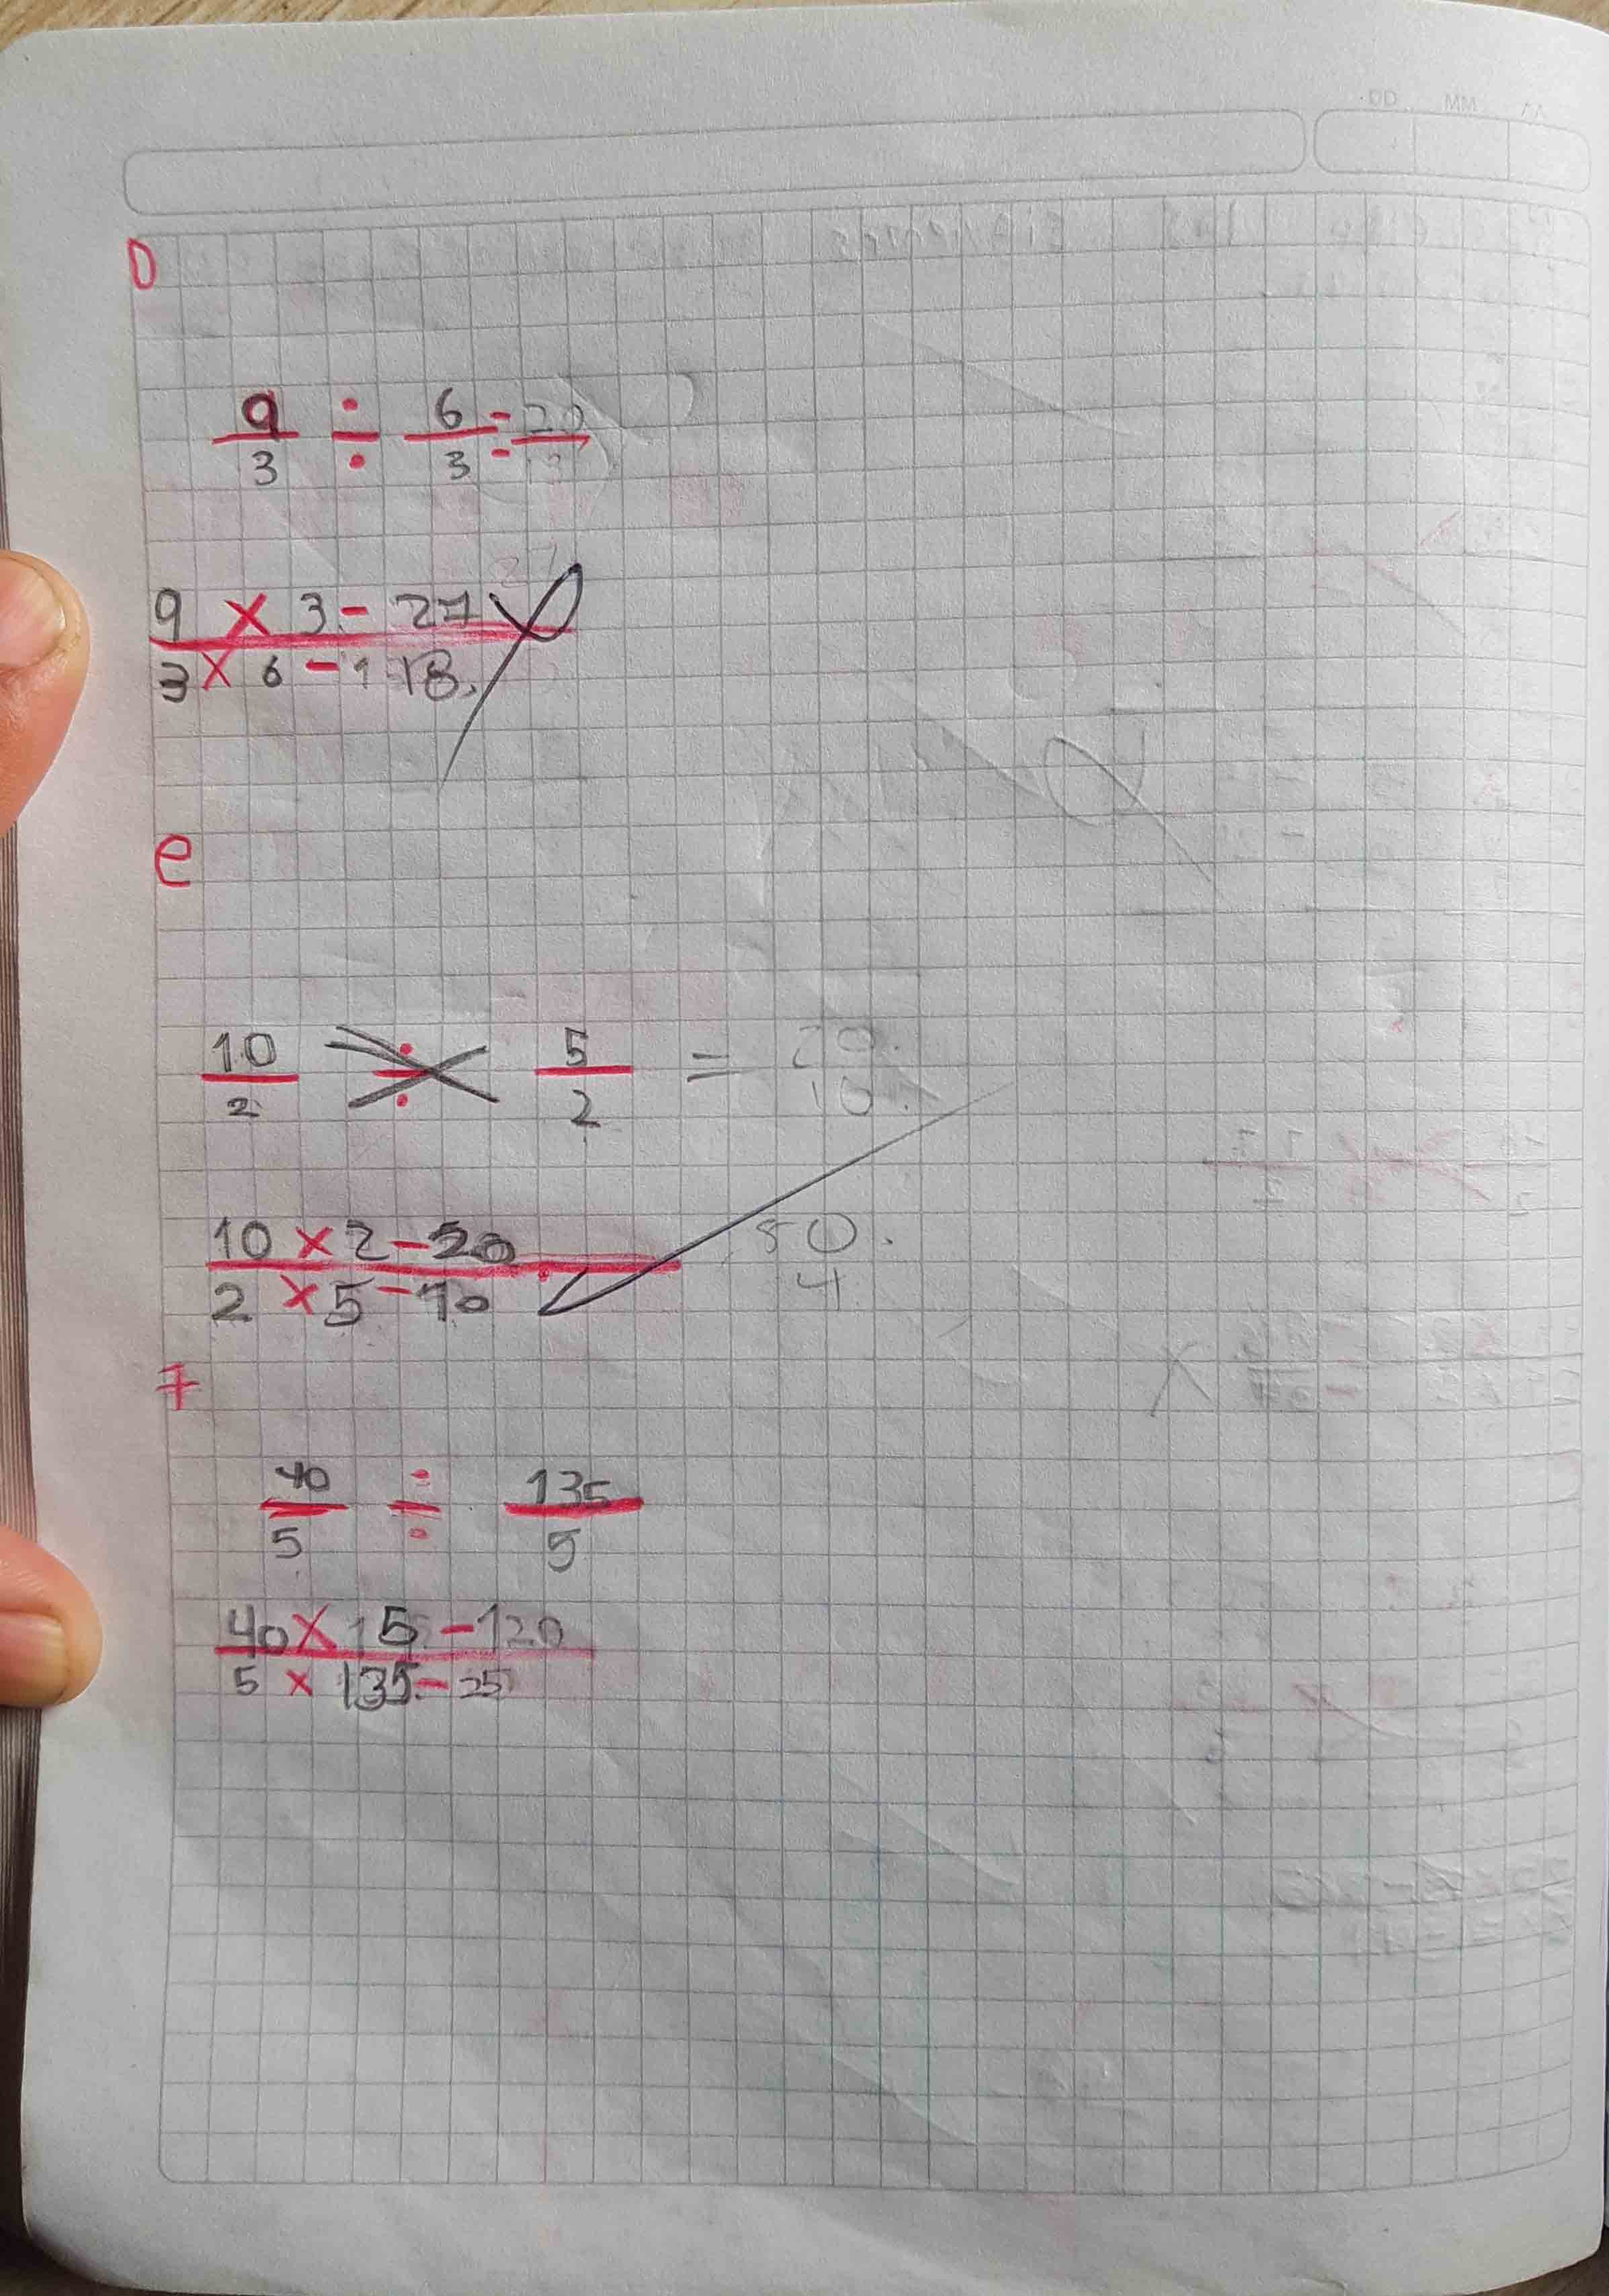 DD MM AA
D
9/3 ÷ 6/3 = 20
9 × 3 - 27
3 × 6 - 1 18.
e
10/2 ÷ 5/2 = 20. / 10.
10 × 2 - 20
2 × 5 - 10
50.
4
f
40/5 ÷ 135/5
40 × 15 - 120
5 × 135 - 25